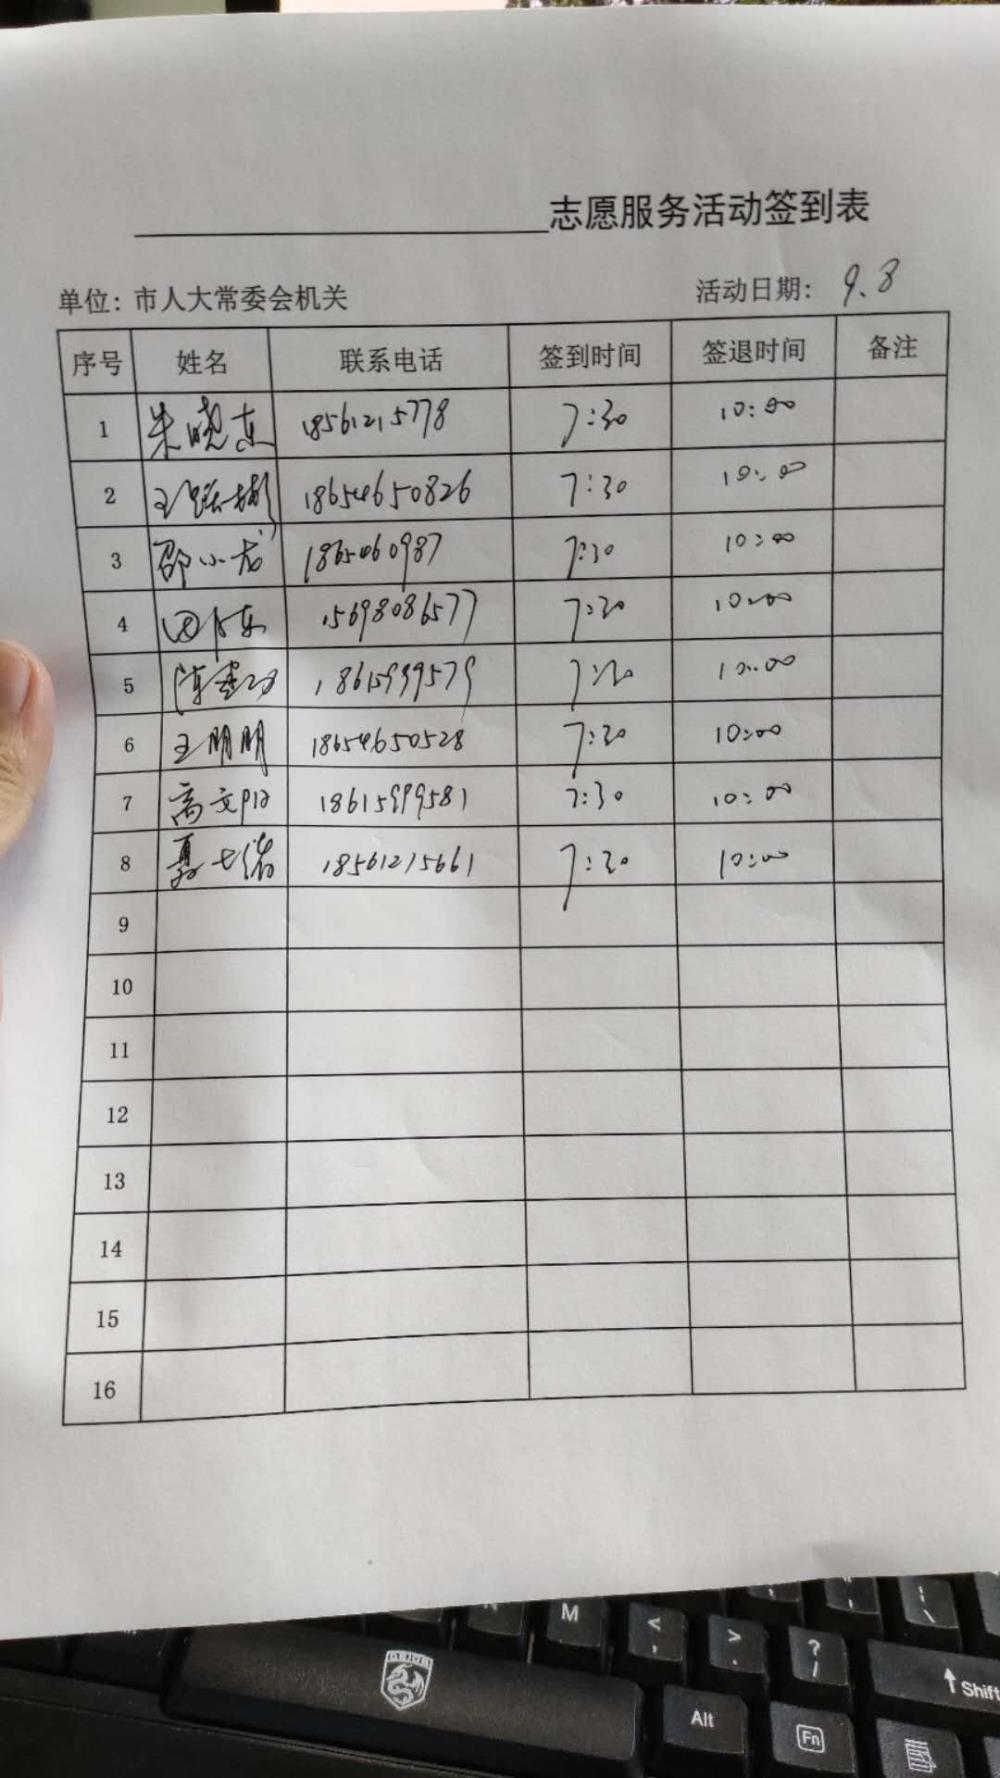 志愿服务活动签到表
单位：市人大常委会机关 活动日期： 9.8
序号 姓名 联系电话 签到时间 签退时间 备注
1 朱晓东 18561215778 7:30 10:00
2 王 18654650826 7:30 10:00
3 邵小龙 7:30 10:00
4 15698086577 7:30 10:00
5 陈 18615999579 7:30 10:00
6 王明明 18654650528 7:30 10:00
7 高文 18615999581 7:30 10:00
8 18561215661 7:30 10:00
9
10
11
12
13
14
15
16
M
<
,
>
.
?
/
Shift
Alt
Fn